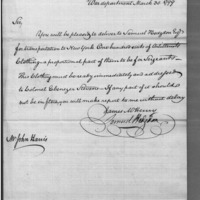 War department March 30 1799
Sir,
You will be pleased to deliver to Samuel Hodgdon Esqr
for transportation to New York One hundred suits of Artillerists
Clothing a proportional part of them to be for Sergeants
This Clothing must be ready immediately and
to Colonel Ebenezer Stevens If any part of it should
not be in Store you will make report to me without delay
James McHenry
Samuel Hodgdon
Mr John Harris